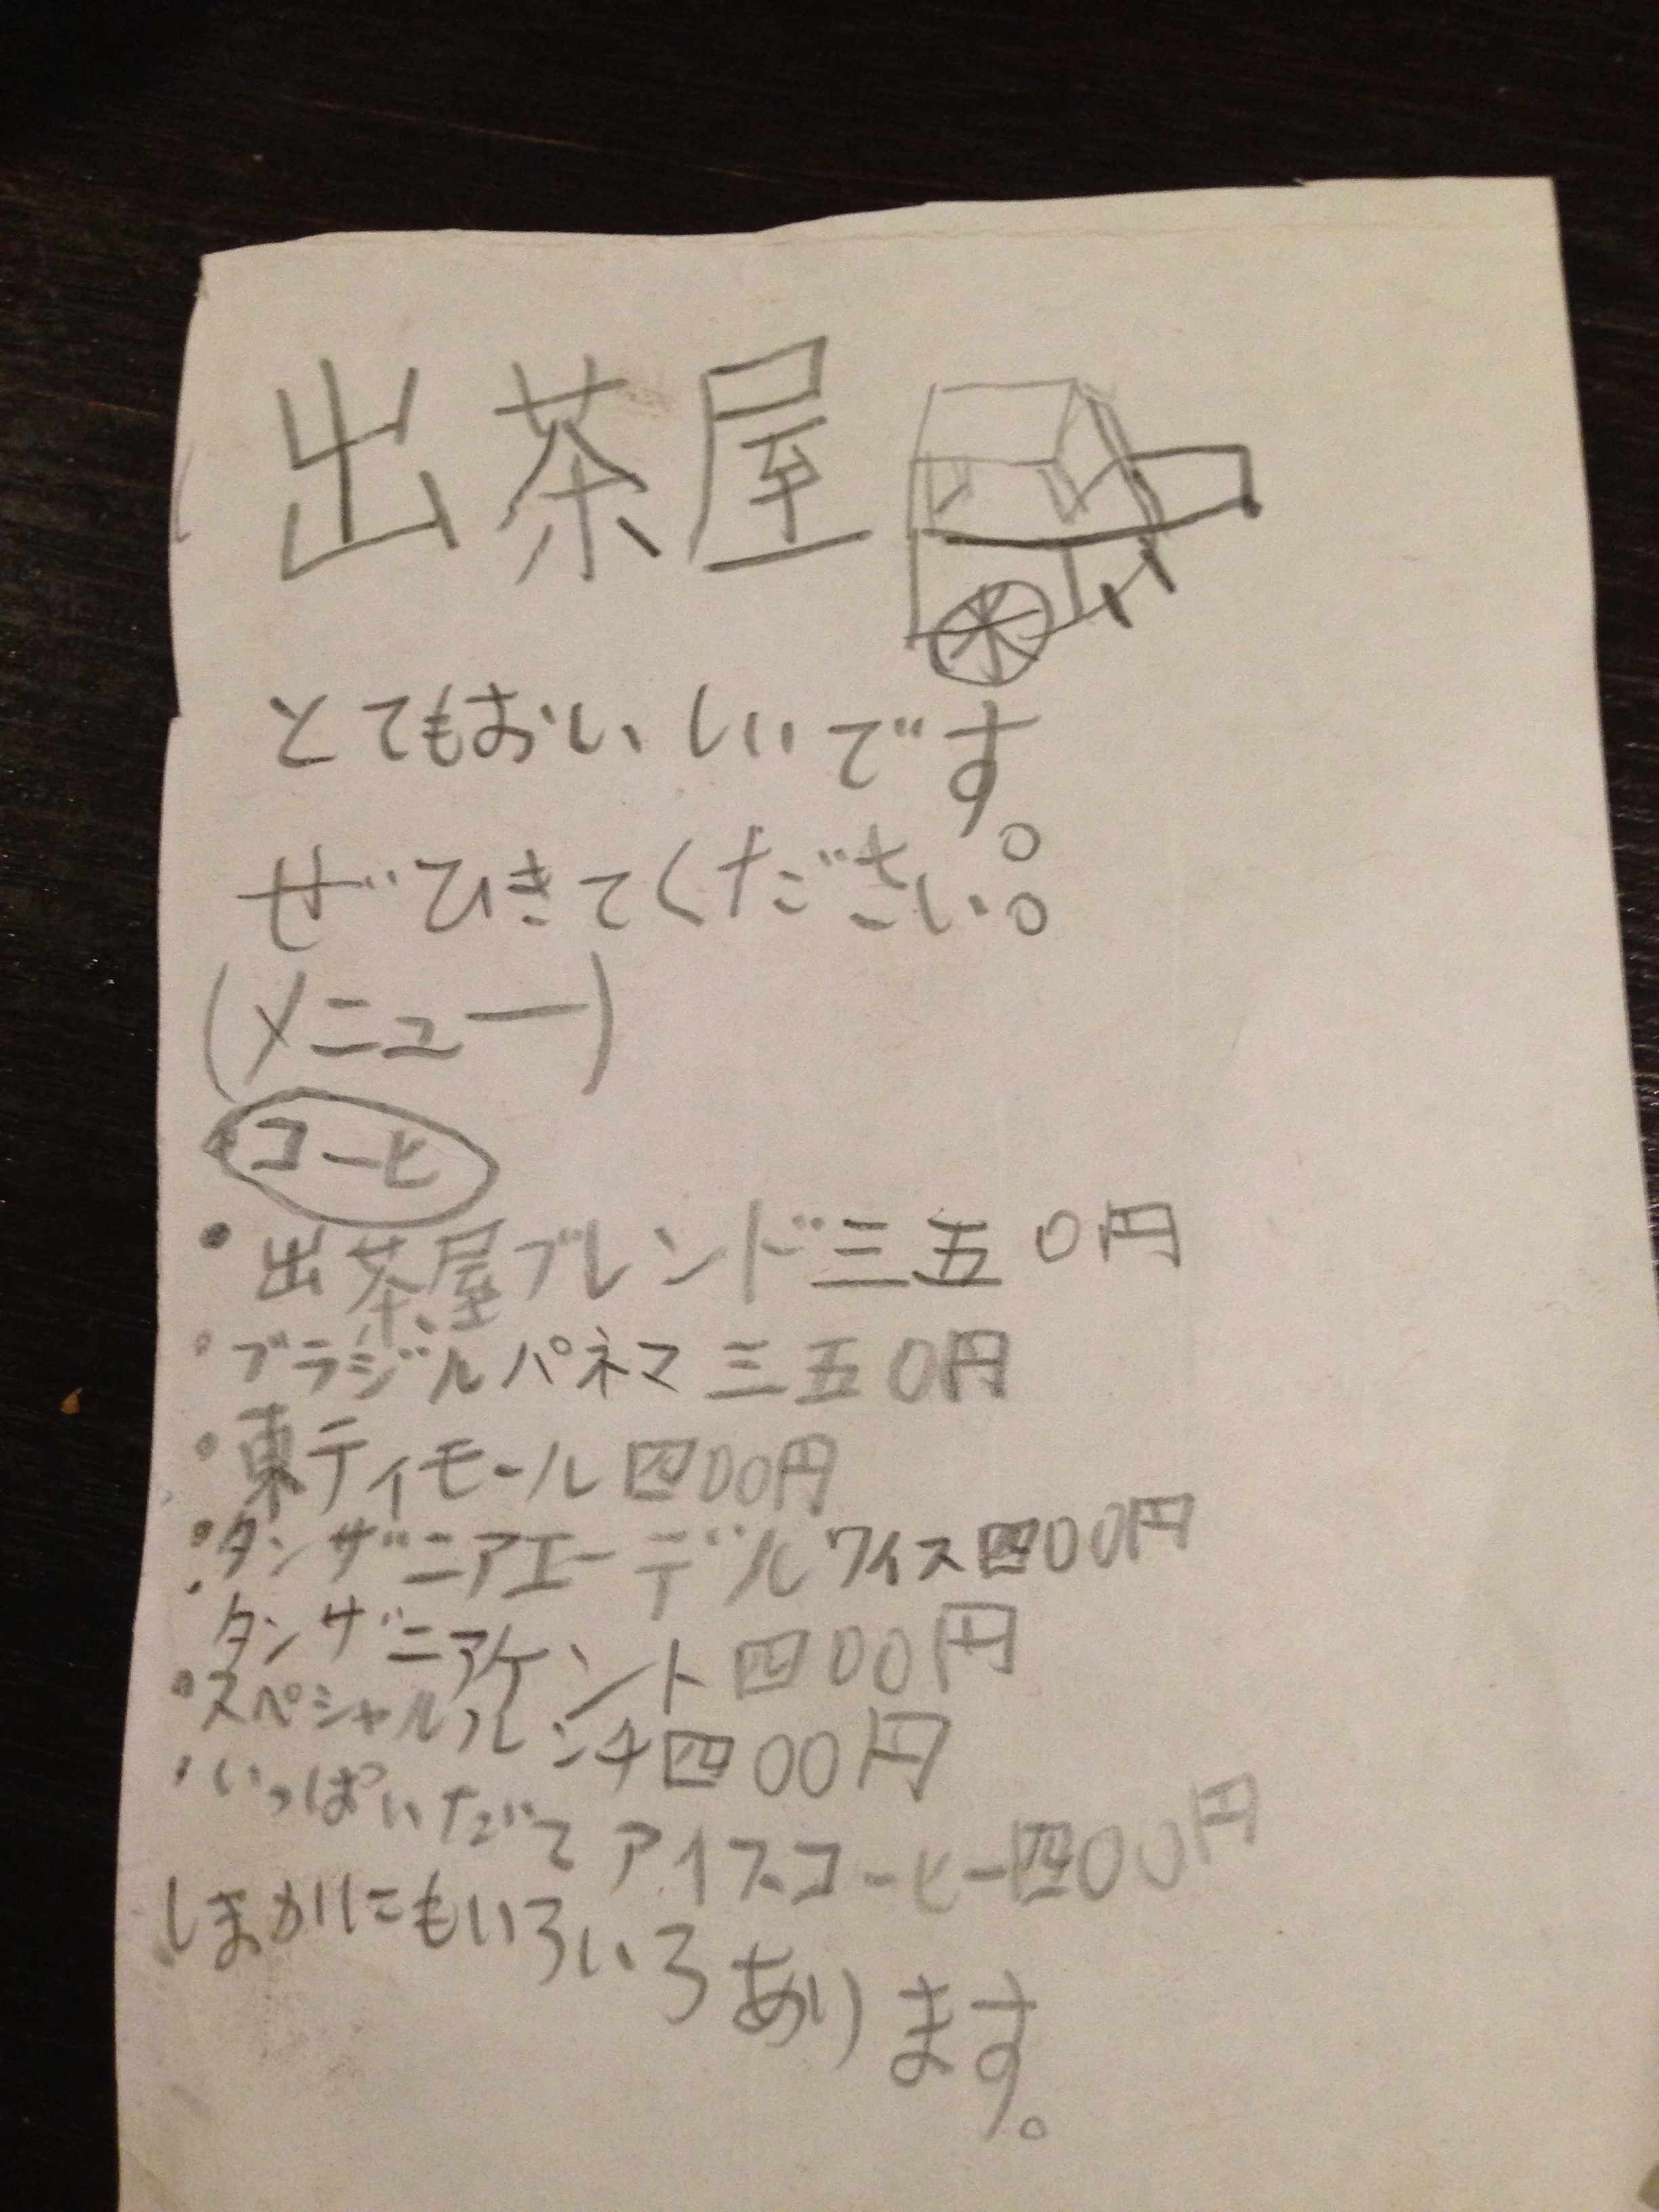 出茶屋
とてもおいしいです。
ぜひきてください。
(メニュー)
コーヒ
・出茶屋ブレンド三五〇円
・ブラジルパネマ三五〇円
・東ティモール四〇〇円
・タンザニアエーデルワイス四〇〇円
・タンザニアケント四〇〇円
・スペシャルフレンチ四〇〇円
・いっぱいだてアイスコーヒー四〇〇円
ほかにもいろいろあります。